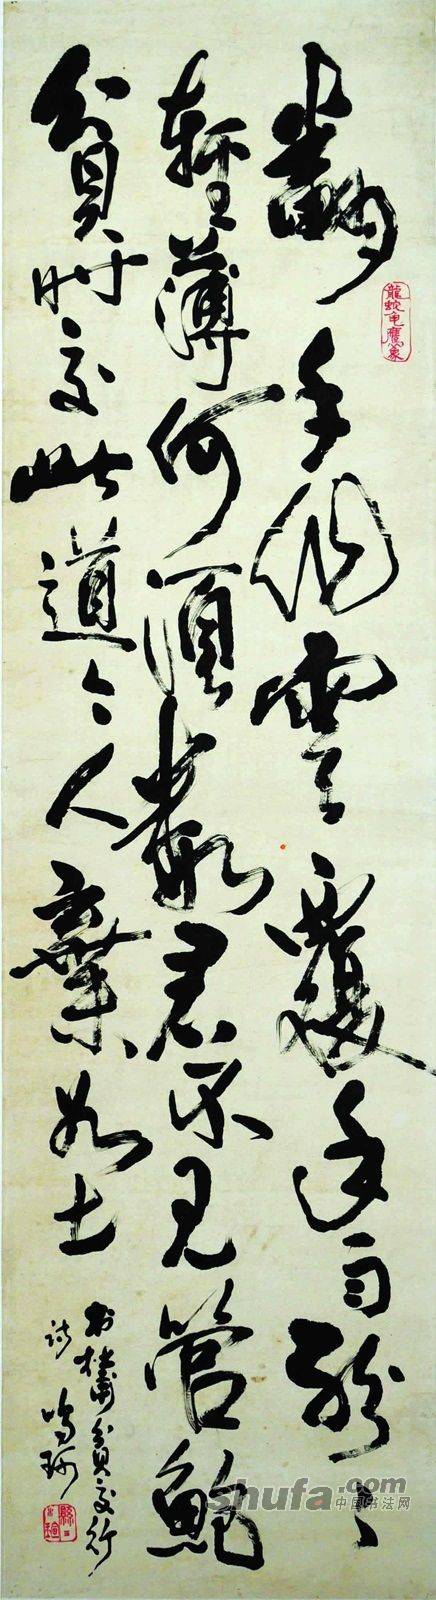 翻手作雲覆手雨紛々
輕薄何須數君不見管鮑
貧時交此道今人棄如土
杜甫貧交行
詩
shufa.com
中国书法网